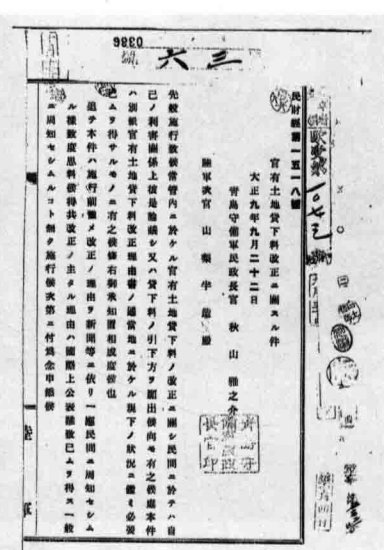 0386
三六
民財經第一五一八號
官有土地貸下料改正ニ關スル件
大正九年九月二十二日
青島守備軍民政長官 秋山雅之介
陸軍次官 山梨半造殿
先般施行致候當管内ニ於ケル官有土地貸下料ノ改正ニ關シ民間ニ於テハ自
己ノ利害關係上彼是論議シ又ハ貸下料ノ引下方ヲ願出候向モ有之候處本件
ハ別紙官有土地貸下料改正理由書ノ通當地ニ於ケル現下ノ狀況ニ鑑ミ必要
已ムヲ得サルモノニ有之候條右御承知置相成度候也
追テ本件ハ施行前豫メ改正ノ理由ヲ新聞等ニ依リ一應民間ニ周知セシム
ル樣致度思料候得共改正ノ主タル理由ハ國際上公表難致已ムヲ得ス一般
ニ周知セシムルコト無ク施行候次第ニ付爲念申添候
陸軍